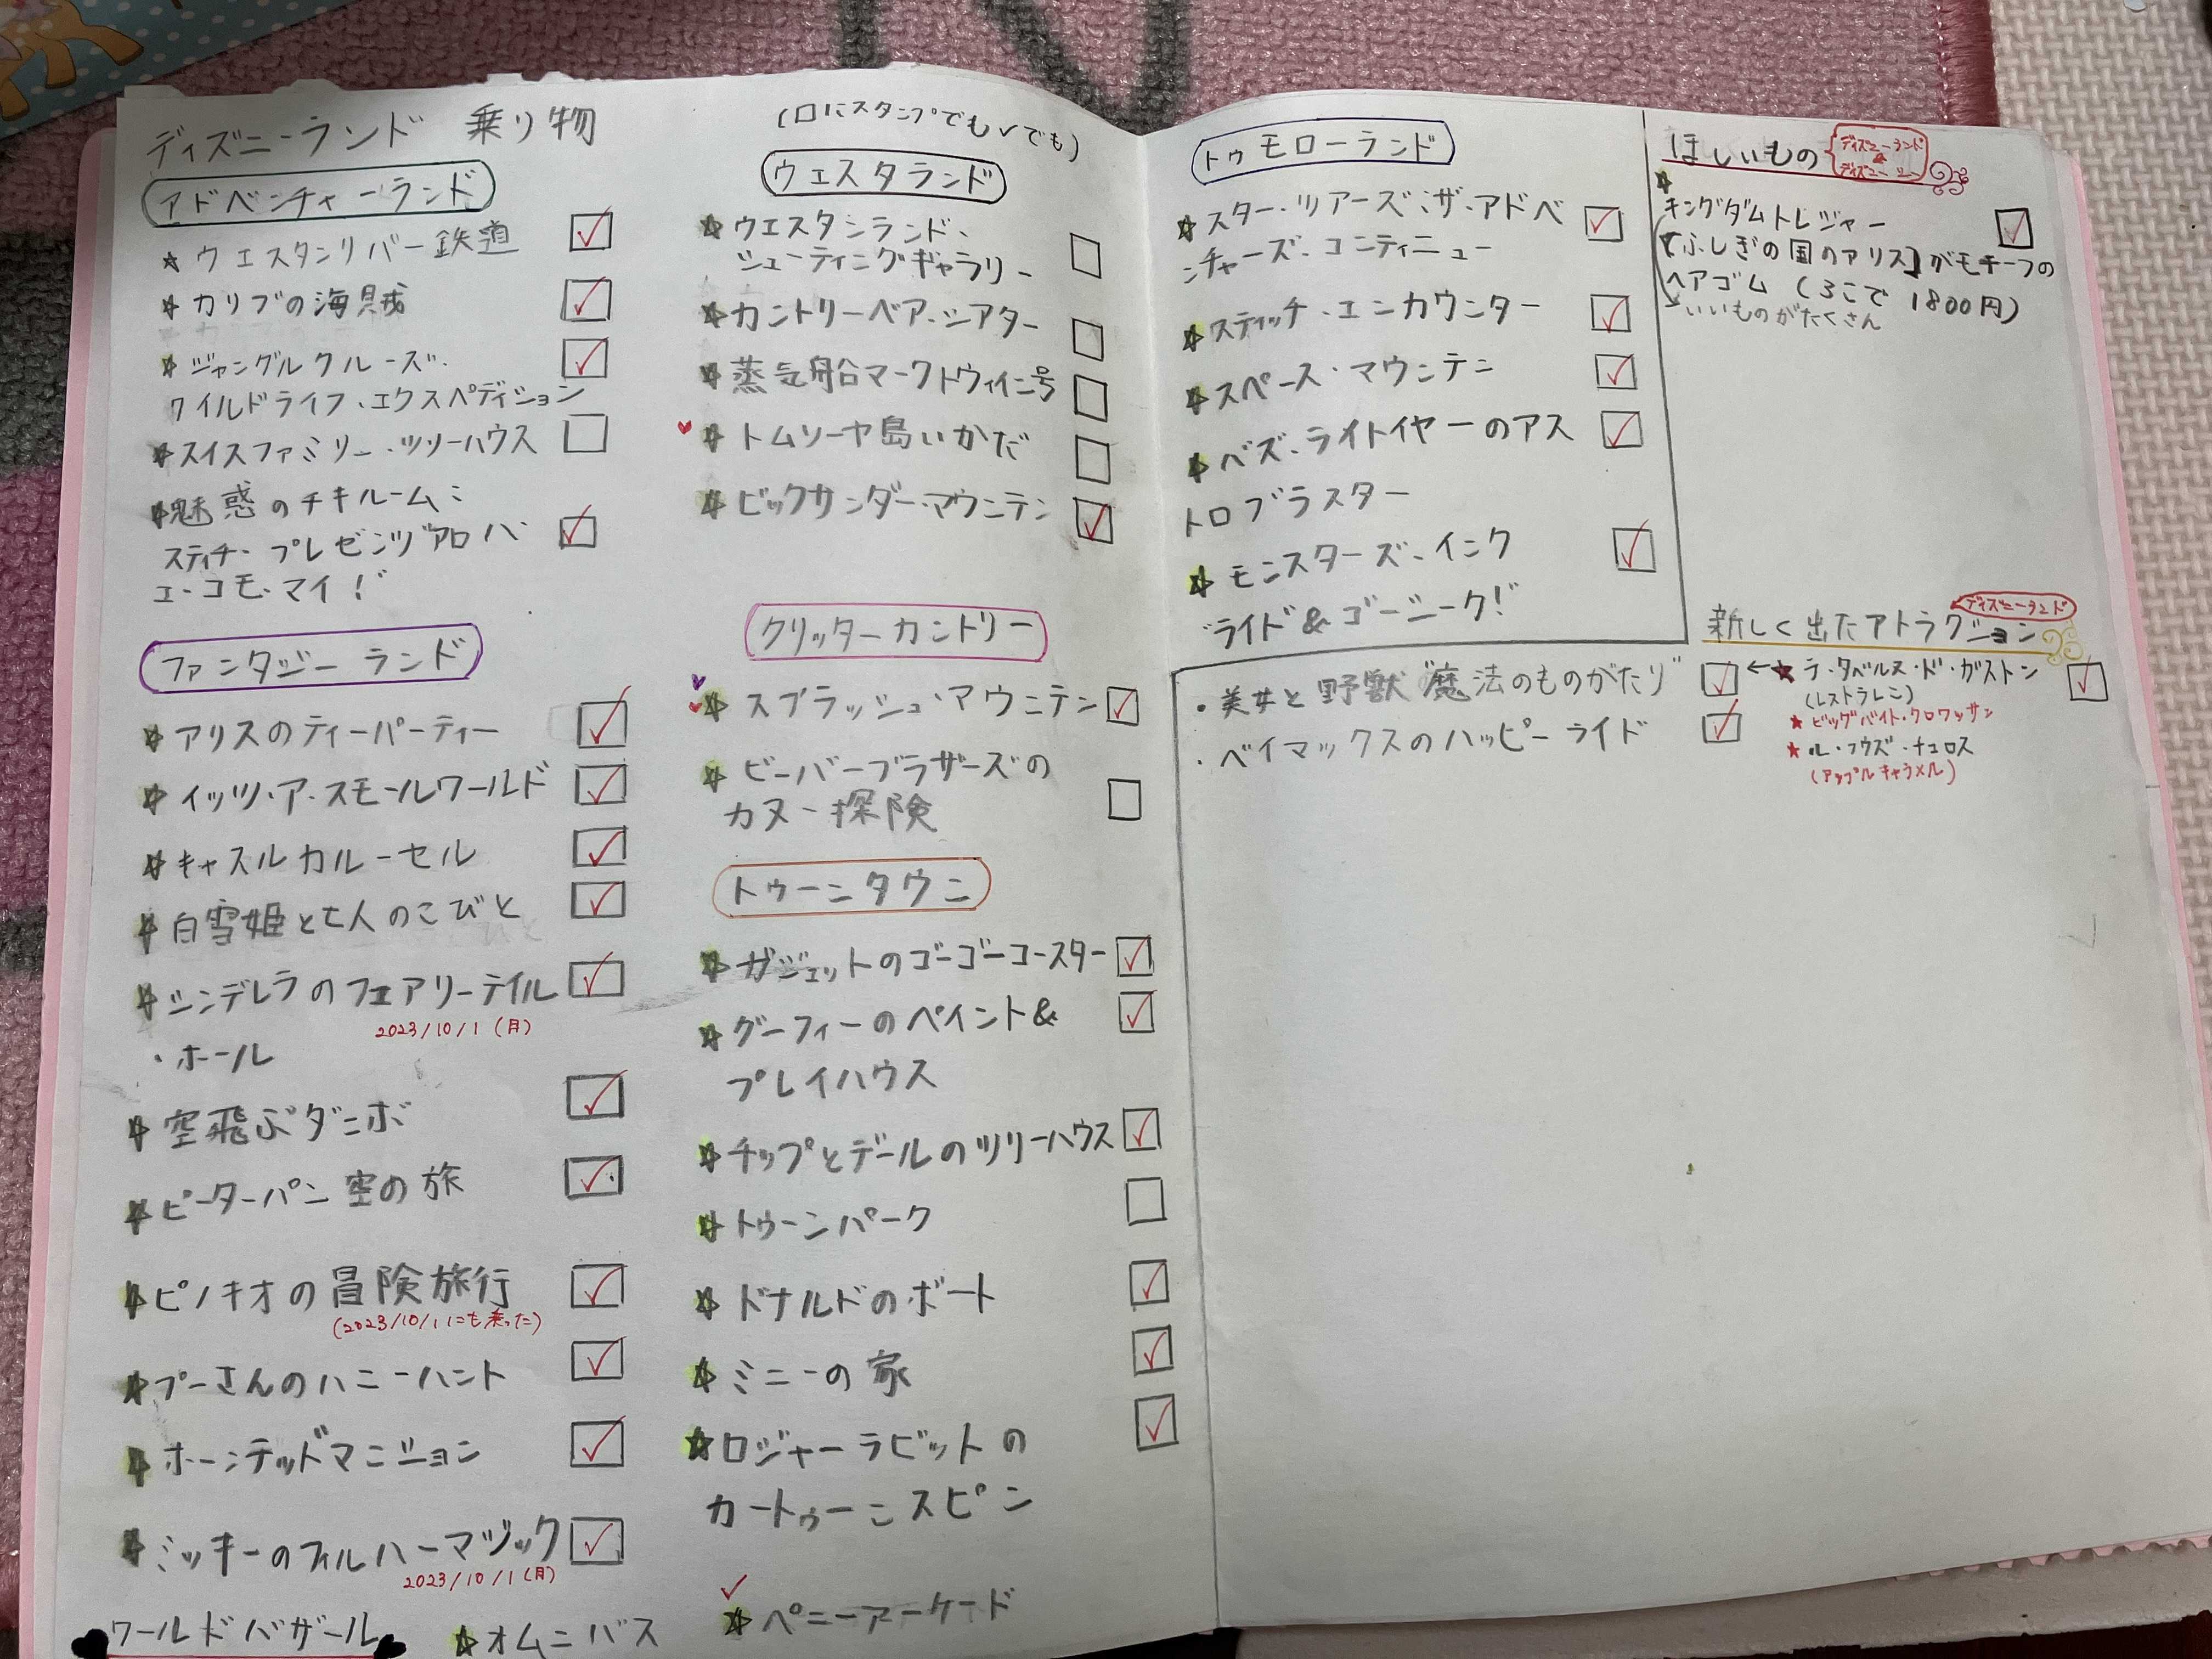 ディズニーランド 乗り物
(口にスタンプでも✓でも)
アドベンチャーランド
☆ウエスタンリバー鉄道
☆カリブの海賊
☆ジャングルクルーズ・
ワイルドライフ・エクスペディション
☆スイスファミリー・ツリーハウス
☆魅惑のチキルーム:
スティチ・プレゼンツ"アロハ・
エ・コモ・マイ!"
ファンタジーランド
☆アリスのティーパーティー
☆イッツ・ア・スモールワールド
☆キャスルカルーセル
☆白雪姫と七人のこびと
☆シンデレラのフェアリーテイル
2023/10/1(月)
・ホール
☆空飛ぶダンボ
☆ピーターパン空の旅
☆ピノキオの冒険旅行
(2023/10/1にも乗った)
☆プーさんのハニーハント
☆ホーンテッドマンション
☆ミッキーのフィルハーマジック
2023/10/1(月)
ワールドバザール
☆オムニバス
☆ペニーアーケード
ウェスタランド
☆ウエスタンランド・
シューティングギャラリー
☆カントリーベア・シアター
☆蒸気船マークトウェイン号
☆トムソーヤ島いかだ
☆ビックサンダー・マウンテン
クリッターカントリー
☆スプラッシュ・マウンテン
☆ビーバーブラザーズの
カヌー探険
トゥーンタウン
☆ガジェットのゴーゴーコースター
☆グーフィーのペイント&
プレイハウス
☆チップとデールのツリーハウス
☆トゥーンパーク
☆ドナルドのボート
☆ミニーの家
☆ロジャーラビットの
カートゥーンスピン
トゥモローランド
☆スター・ツアーズ:ザ・アドベ
ンチャーズ・コンティニュー
☆スティッチ・エンカウンター
☆スペース・マウンテン
☆ベズ・ライトイヤーのアス
トロブラスター
☆モンスターズ・インク
"ライド&ゴーシーク!"
・美女と野獣"魔法のものがたり"
・ベイマックスのハッピーライド
ほしいもの
ディズニーランド
&
ディズニーシー
☆
キングダムトレジャー
【ふしぎの国のアリス】がモチーフの
ヘアゴム (3こで 1800円)
→いいものがたくさん
ディズニーランド
新しく出たアトラクション
←★ラ・タベルヌ・ド・ガストン
(レストラン)
★ビッグバイト・クロワッサン
★ル・フウズ・チュロス
(アップルキャラメル)